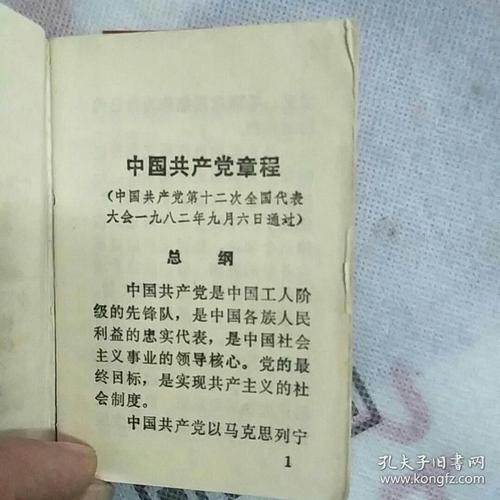 中国共产党章程
（中国共产党第十二次全国代表
大会一九八二年九月六日通过）
总 纲
中国共产党是中国工人阶
级的先锋队，是中国各族人民
利益的忠实代表，是中国社会
主义事业的领导核心。党的最
终目标，是实现共产主义的社
会制度。
中国共产党以马克思列宁
1
孔夫子旧书网
www.kongfz.com